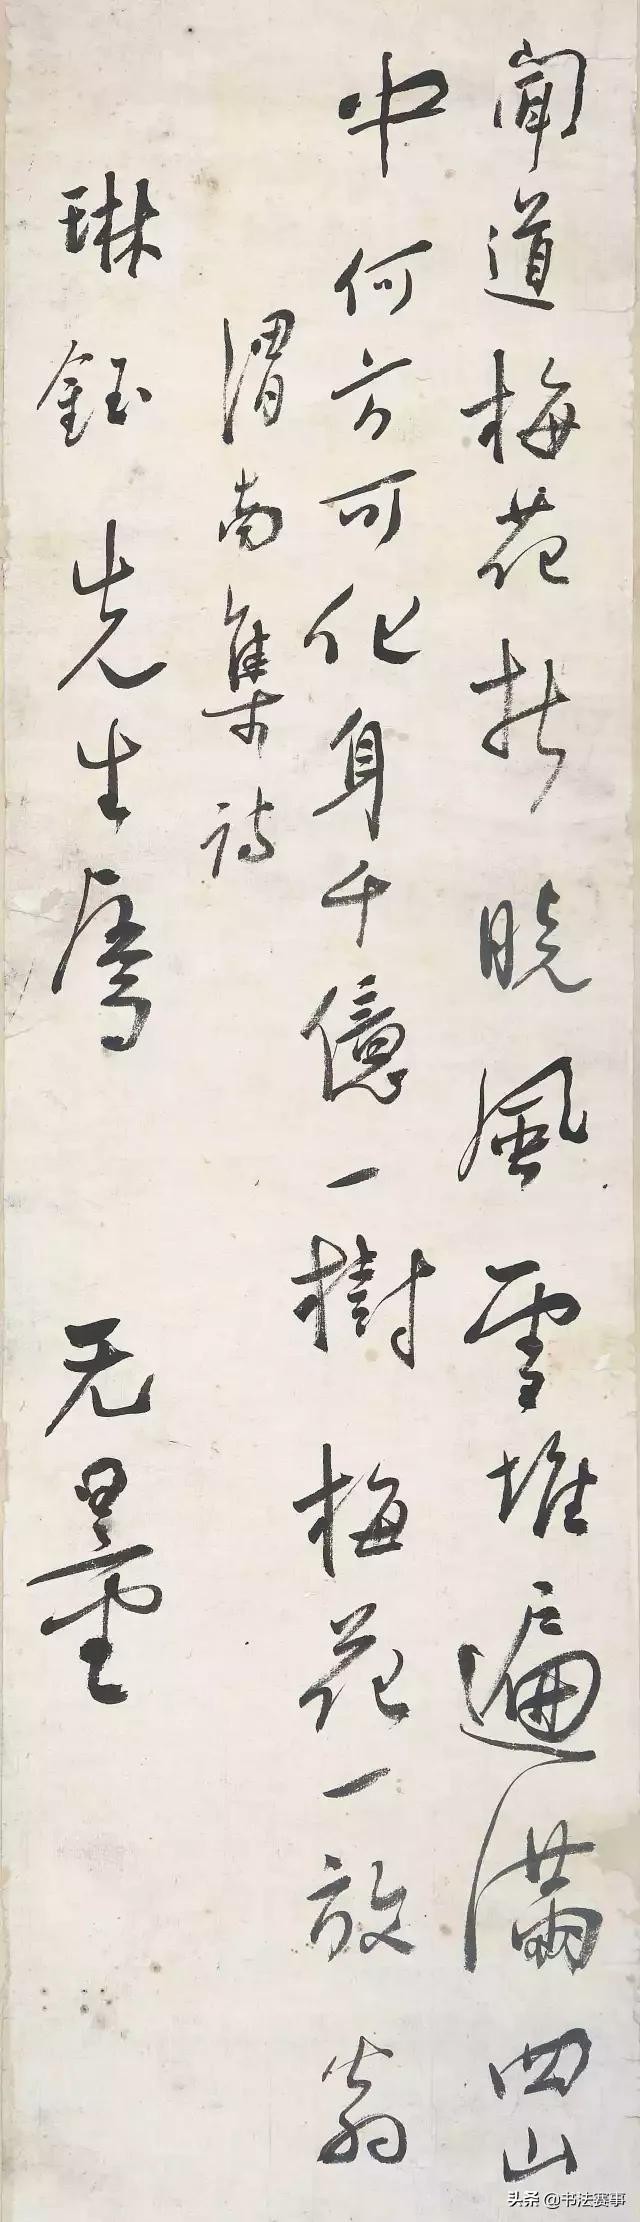 聞道梅花拆曉風雪堆遍滿四山
中何方可化身千億一樹梅花一放翁
渭南集詩
琳鈺先生屬 无量
头条 @书法赛事